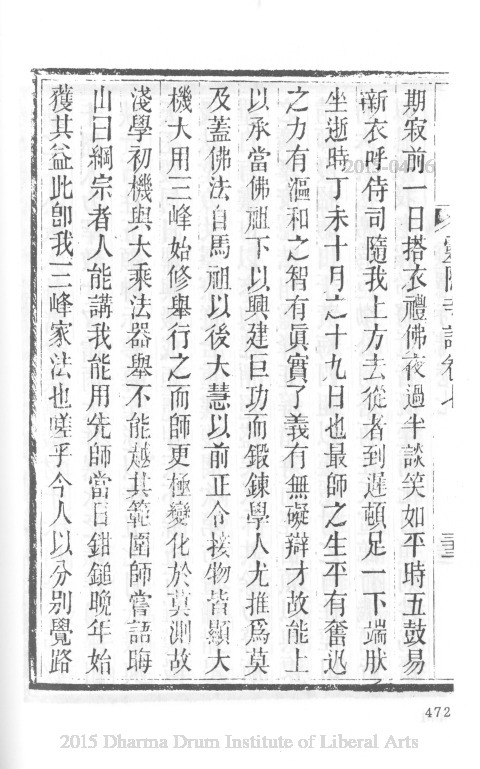 期寂前一日搭衣禮佛夜過半談笑如平時五鼓易
新衣呼侍司隨我上方去從者到遲頓足一下端肰
坐逝時丁未十月之十九日也最師之生平有奮迅
之力有漚和之智有眞實了義有無礙辯才故能上
以承當佛祖下以興建巨功而鍛鍊學人尤推爲莫
及蓋佛法自馬祖以後大慧以前正令接物皆顯大
機大用三峰始修舉行之而師更極變化於莫測故
淺學初機與大乘法器舉不能越其範圍師嘗語晦
山曰綱宗者人能講我能用先師當日鉗鎚晚年始
獲其益此卽我三峰家法也嗟乎今人以分別覺路
472
2015 Dharma Drum Institute of Liberal Arts